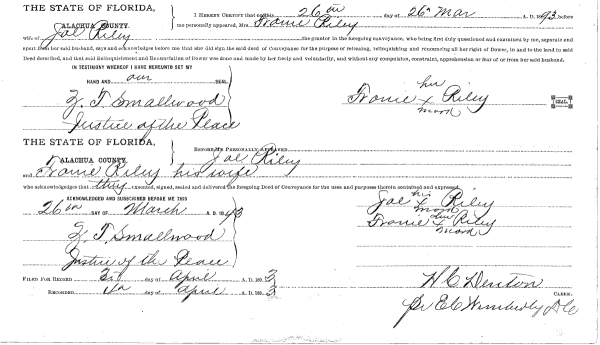 THE STATE OF FLORIDA,
ALACHUA COUNTY.
I HEREBY CERTIFY that on this 26th day of 26th Mar A. D. 1893 before
me personally appeared, Mrs. Fronie Riley
wife of Joe Riley the grantor in the foregoing conveyance, who being first duly questioned and examined by me, separate and
apart from her said husband, says and acknowledges before me that she did sign the said deed of Conveyance for the purpose of releasing, relinquishing and renouncing all her right of Dower, in and to the land in said
Deed described, and that said relinquishment and Renunciation of Dower was done and made by her freely and voluntarily, and without any compulsion, constraint, apprehension or fear of or from her said husband.
IN TESTIMONY WHEREOF I HAVE HEREUNTO SET MY
HAND AND our SEAL
Z. T. Smallwood
Justice of the Peace
her
Fronie x Riley
mark
SEAL.
THE STATE OF FLORIDA,
ALACHUA COUNTY.
BEFORE ME PERSONALLY APPEARED
Joe Riley
and Fronie Riley his wife
who acknowledges that they executed, signed, sealed and delivered the foregoing Deed of Conveyance for the uses and purposes therein contained and expressed.
ACKNOWLEDGED AND SUBSCRIBED BEFORE ME THIS
26th DAY OF March A. D. 1893
Z. T. Smallwood
Justice of the Peace
his
Joe x Riley
mark
her
Fronie x Riley
mark
FILED FOR RECORD 3rd day of April A. D. 1893
RECORDED 4th day of April A. D. 1893
H C Denton
CLERK.
Pr E C Wimberly D C